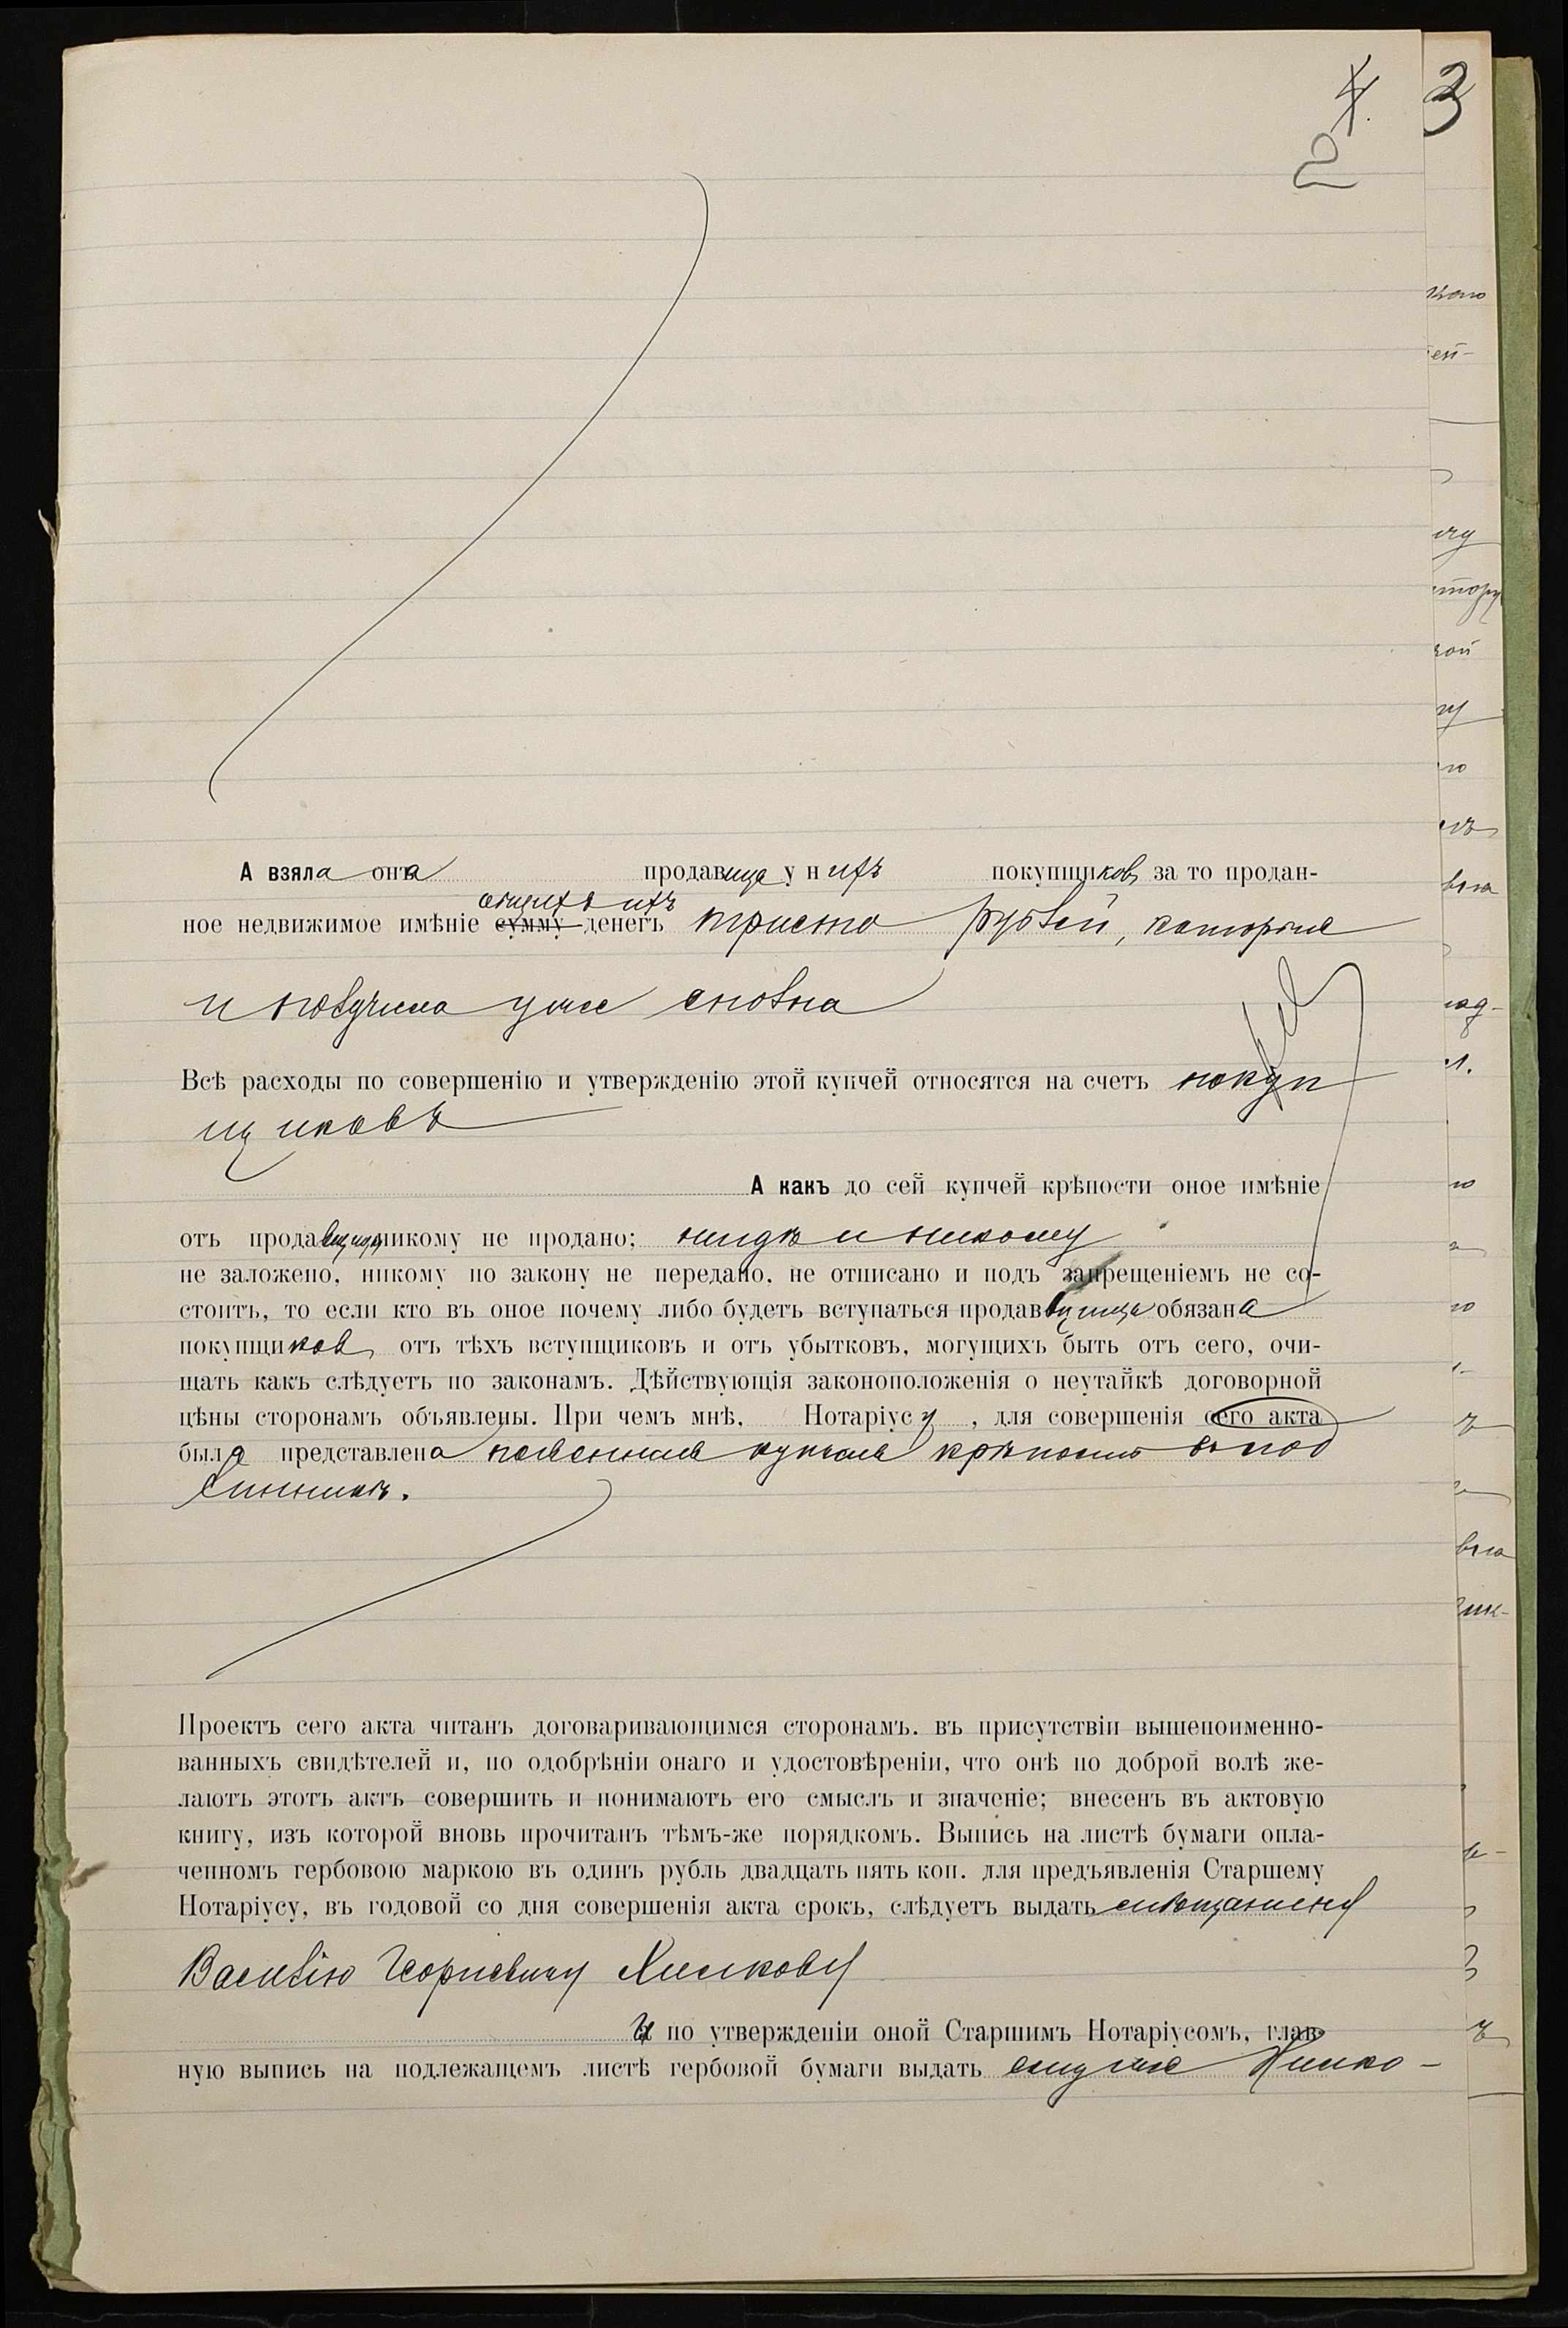 4. 3
2
А взяла она продавица у нихъ покупщиковъ за то продан-
общихъ ихъ
ное недвижимое имѣніе сумму денегъ триста рублей, которые
и получила уже сполна
Всѣ расходы по совершенію и утвержденію этой купчей относятся на счетъ покуп
щиковъ
А какъ до сей купчей крѣпости оное имѣніе
отъ продавщицы никому не продано; нигдѣ и никому
не заложено, никому по закону не передано, не отписано и подъ запрещеніемъ не со-
стоитъ, то если кто въ оное почему либо будетъ вступаться продавщица обязана
покупщиковъ отъ тѣхъ вступщиковъ и отъ убытковъ, могущихъ быть отъ сего, очи-
щать какъ слѣдуетъ по законамъ. Дѣйствующія законоположенія о неутайкѣ договорной
цѣны сторонамъ объявлены. При чемъ мнѣ, Нотаріусу, для совершенія сего акта
была представлена поясненная купчая крѣпость въ под
линникѣ.
Проектъ сего акта читанъ договаривающимся сторонамъ. въ присутствіи вышепоименно-
ванныхъ свидѣтелей и, по одобрѣніи онаго и удостовѣреніи, что онѣ по доброй волѣ же-
лаютъ этотъ актъ совершить и понимаютъ его смыслъ и значеніе; внесенъ въ актовую
книгу, изъ которой вновь прочитанъ тѣмъ-же порядкомъ. Выпись на листѣ бумаги опла-
ченномъ гербовою маркою въ одинъ рубль двадцать пять коп. для предъявленія Старшему
Нотаріусу, въ годовой со дня совершенія акта срокъ, слѣдуетъ выдать
Василію Хилкову
И по утвержденіи оной Старшимъ Нотаріусомъ, глав-
ную выпись на подлежащемъ листѣ гербовой бумаги выдать ему же Хилко-